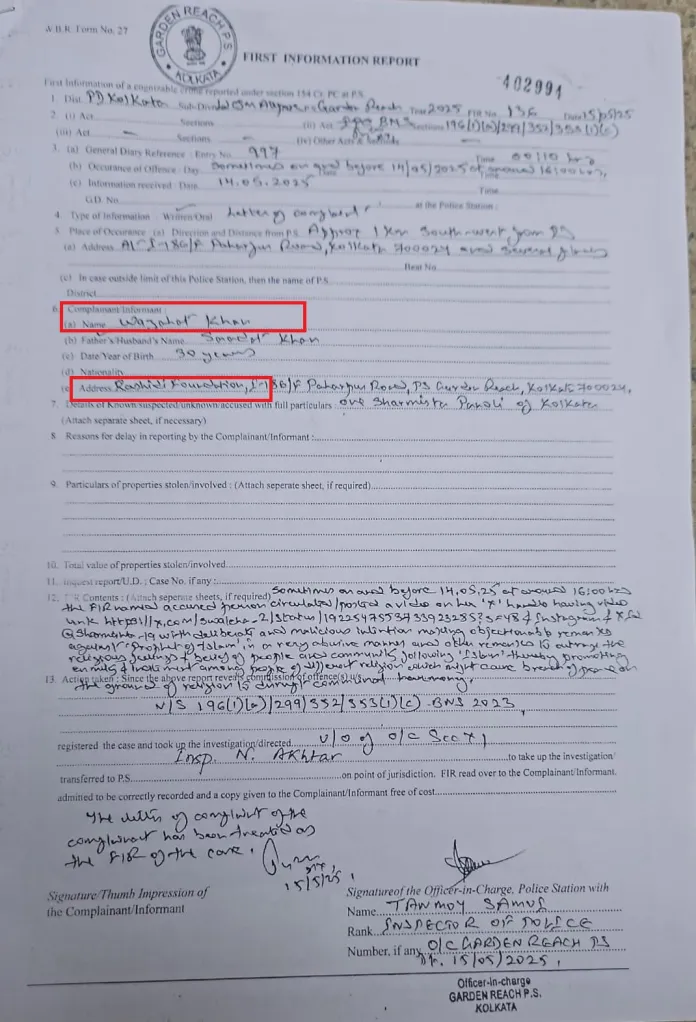 W.B.R. Form No. 27
GARDEN REACH P.S.
KOLKATA
FIRST INFORMATION REPORT
402994
First Information of a cognizable crime reported under section 154 Cr. PC at P.S.
1. Dist. PD Kolkata Sub-Divn Garden Reach Year 2025 FIR No. 136 Date 15/05/25
2. (i) Act Sections (ii) Act BNS Sections 196(1)(a)/299/352/353(1)(c)
(iii) Act Sections (iv) Other Acts &
3. (a) General Diary Reference : Entry No. 997 Time 00:10 hrs
(b) Occurance of Offence : Day Sometimes on and before 14/05/2025 at around 16:00 hrs,
(c) Information received : Date 14.05.2025 Time
G.D. No. at the Police Station :
4. Type of Information : Written/Oral Letter of complaint
5. Place of Occurance (a) Direction and Distance from P.S. Approx 1 km South-west from PS
(a) Address Paharpur Road, Kolkata 700024 and several places
Beat No.
(c) In case outside limit of this Police Station, then the name of P.S.
District
6. Complainant/Informant :
(a) Name Wazahat Khan
(b) Father's/Husband's Name Saadat Khan
(c) Date/Year of Birth 30 years
(d) Nationality
(e) Address Rashidi Foundation, J-186/F Paharpur Road, PS Garden Reach, Kolkata 700024,
7. Details of Known/suspected/unknown accused with full particulars : one Sharmista Panoli of Kolkata
(Attach separate sheet, if necessary)
8. Reasons for delay in reporting by the Complainant/Informant :
9. Particulars of properties stolen/involved : (Attach seperate sheet, if required)
10. Total value of properties stolen/involved
11. Inquest report/U.D. : Case No. if any :
12. FIR Contents : (Attach seperate sheets, if required) Sometimes on and before 14.05.25 at around 16:00 hrs
the FIR named accused person circulated/posted a video on her 'X' handle having video
link & Instagram & X
with deliberate and malicious intention making objectionable remarks
against 'Prophet of Islam' in a very abusive manner and other remarks to outrage the
religious feelings & beliefs of people and community following 'Islam' thereby promoting
enmities & hatred among people of different religion which might cause breach of peace on
13. Action taken : Since the above report reveals commission of offence(s) u/s
the ground of religion & disrupt communal harmony,
U/S 196(1)(a)/299/352/353(1)(c) BNS 2023
registered the case and took up the investigation/directed u/o of O/C
Insp. N. Akhtar to take up the investigation/
transferred to P.S. on point of jurisdiction. FIR read over to the Complainant/Informant.
admitted to be correctly recorded and a copy given to the Complainant/Informant free of cost
The letter of complaint of the
complainant has been treated as
the FIR of the case.
15/5/25.
Signature/Thumb Impression of
the Complainant/Informant
Signatureof the Officer-in-Charge, Police Station with
Name TANMOY SAMUI
Rank INSPECTOR OF POLICE
Number, if any O/C GARDEN REACH PS
Dt. 15/05/2025.
Officer-in-charge
GARDEN REACH P.S.
KOLKATA